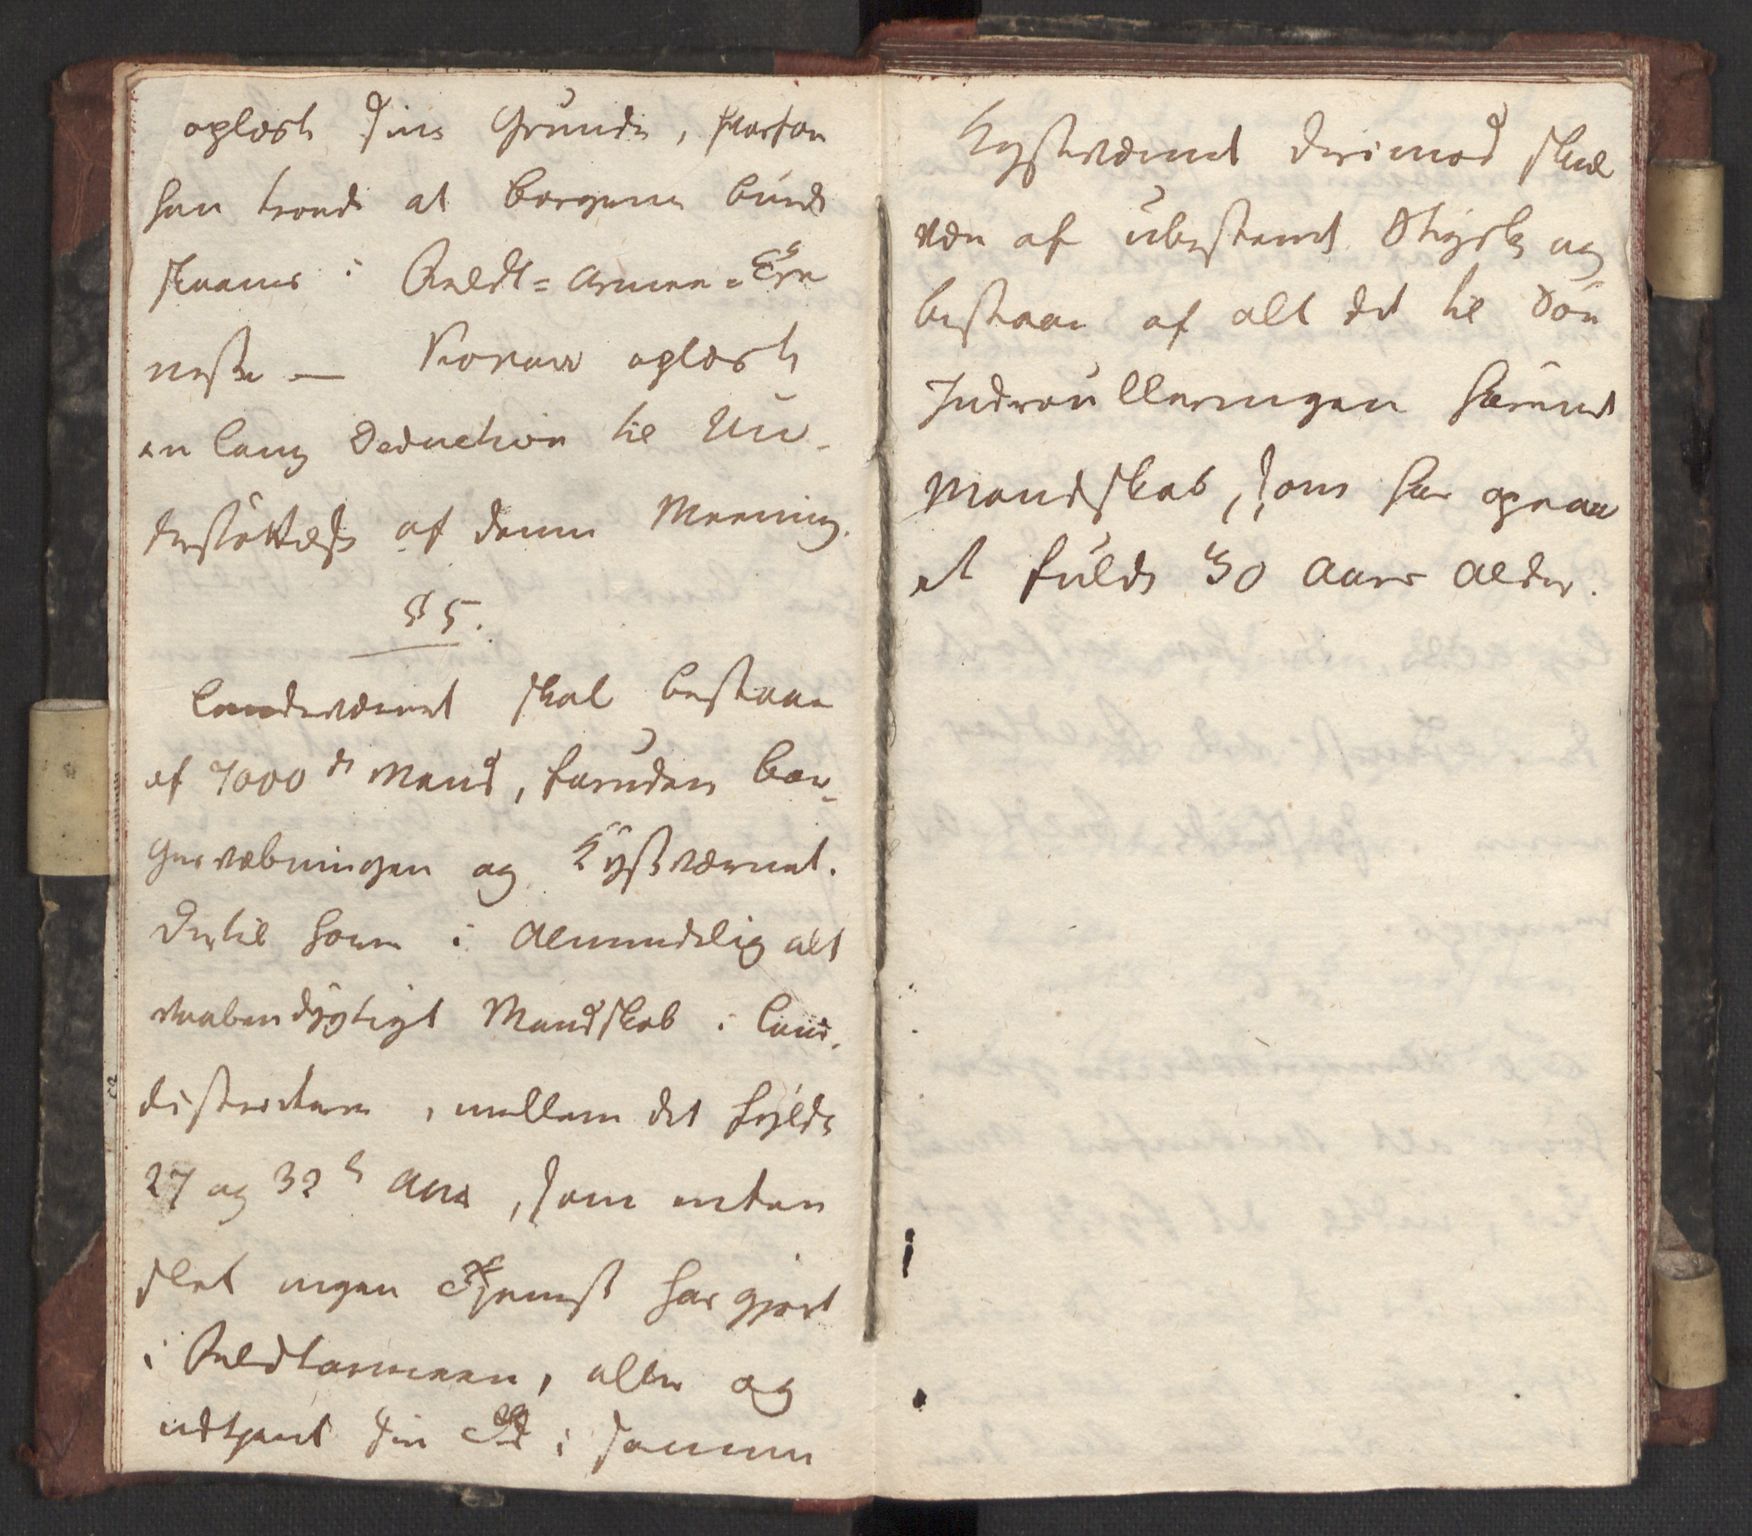 oplæste sine Grunde, hvorfor
han troede at Borgerne burde
skaanes i Feldt=Armee=Tje
neste — Motzfeldt oplæste
en lang Deduction til Un-
derstøttelse af denne Meening.
§ 5.
Landeværnet skal bestaae
af 7000 de Mand, foruden Bor-
gervæbningen og Kystværnet.
Dertil hører i Almindelig alt
vaabendygtigt Mandskab i Land-
districterne, mellem det fylde
27 og 32 te Aar, som enten
slet ingen Tjeneste har gjort
i Feldtarmeen, eller og
udtjent sin Tid i samme
Kystværnet derimod skal
være af ubestemt Styrke og
bestaae af alt det til Søe
Indroulleringen hørende
Mandskab, som har opnaa
et fulde 30 Aars Alder.